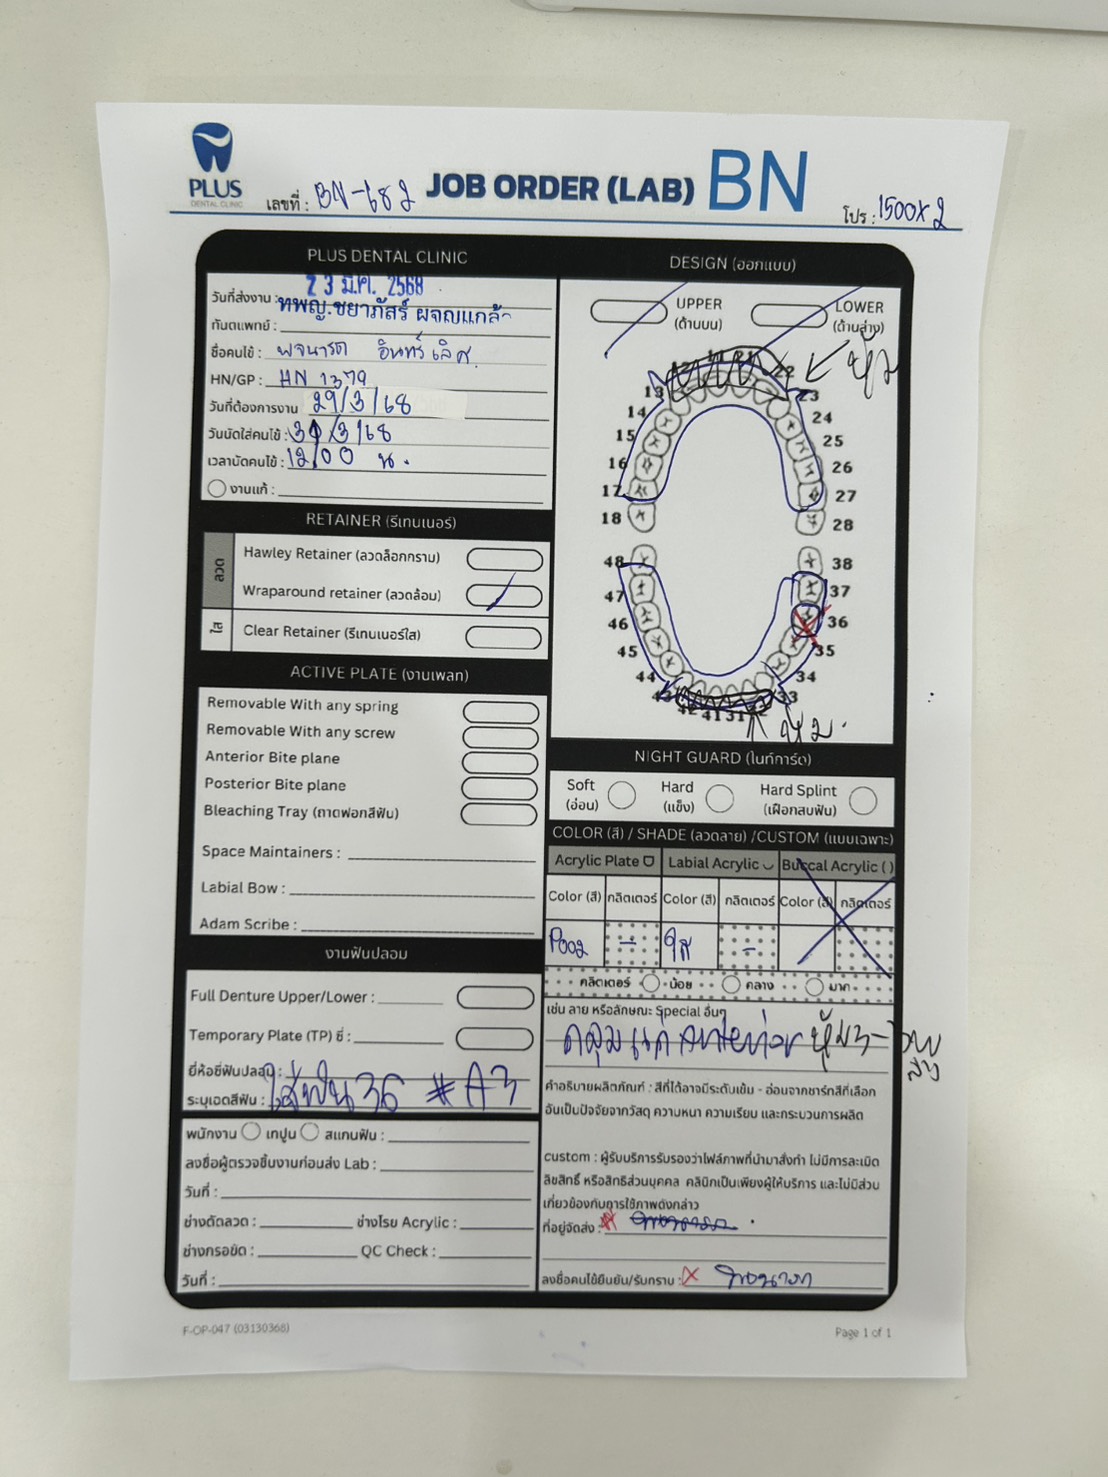 PLUS
DENTAL CLINIC
เลขที่ : BN-682
JOB ORDER (LAB) BN
โปร : 1500x2
PLUS DENTAL CLINIC
วันที่ส่งงาน : 23 มี.ค. 2568
ทันตแพทย์ : ทพญ.ชยาภัสร์ ผจญแกล้ว
ชื่อคนไข้ : พจนารถ อินทร์เลิศ
HN/GP : HN 1379
วันที่ต้องการงาน 29/3/68
วันนัดใส่คนไข้ : 30/3/68
เวลานัดคนไข้ : 12.00 น.
งานแก้ :
RETAINER (รีเทนเนอร์)
ลวด
Hawley Retainer (ลวดล็อกกราม)
Wraparound retainer (ลวดล้อม)
ใส
Clear Retainer (รีเทนเนอร์ใส)
ACTIVE PLATE (งานเพลท)
Removable With any spring
Removable With any screw
Anterior Bite plane
Posterior Bite plane
Bleaching Tray (ถาดฟอกสีฟัน)
Space Maintainers :
Labial Bow :
Adam Scribe :
งานฟันปลอม
Full Denture Upper/Lower :
Temporary Plate (TP) ซี่ :
ยี่ห้อซี่ฟันปลอม :
ระบุเฉดสีฟัน : ใส่ฟัน 36 #A3
พนักงาน เทปูน สแกนฟัน :
ลงชื่อผู้ตรวจชิ้นงานก่อนส่ง Lab :
วันที่ :
ช่างดัดลวด : ช่างโรย Acrylic :
ช่างกรอขัด : QC Check :
วันที่ :
DESIGN (ออกแบบ)
UPPER
(ด้านบน)
LOWER
(ด้านล่าง)
หุ้ม
12 11 21 22
13 23
14 24
15 25
16 26
17 27
18 28
48 38
47 37
46 36
45 35
44 34
43 33
42 41 31 32
หุ้ม
NIGHT GUARD (ไนท์การ์ด)
Soft
(อ่อน)
Hard
(แข็ง)
Hard Splint
(เฝือกสบฟัน)
COLOR (สี) / SHADE (ลวดลาย) /CUSTOM (แบบเฉพาะ)
Acrylic Plate Labial Acrylic Buccal Acrylic ( )
Color (สี) กลิตเตอร์ Color (สี) กลิตเตอร์ Color (สี) กลิตเตอร์
P002 - ใส -
กลิตเตอร์ น้อย กลาง มาก
เช่น ลาย หรือลักษณะ Special อื่นๆ
คลุมแค่ Anterior หุ้ม 3-3 บน
ล่าง
คำอธิบายผลิตภัณฑ์ : สีที่ได้อาจมีระดับเข้ม - อ่อนจากชาร์ทสีที่เลือก
อันเป็นปัจจัยจากวัสดุ ความหนา ความเรียบ และกระบวนการผลิต
custom : ผู้รับบริการรับรองว่าไฟล์ภาพที่นำมาสั่งทำ ไม่มีการละเมิด
ลิขสิทธิ์ หรือสิทธิส่วนบุคคล คลินิกเป็นเพียงผู้ให้บริการ และไม่มีส่วน
เกี่ยวข้องกับการใช้ภาพดังกล่าว
ที่อยู่จัดส่ง :
ลงชื่อคนไข้ยืนยัน/รับทราบ : x พจนารถ
F-OP-047 (03130368)
Page 1 of 1